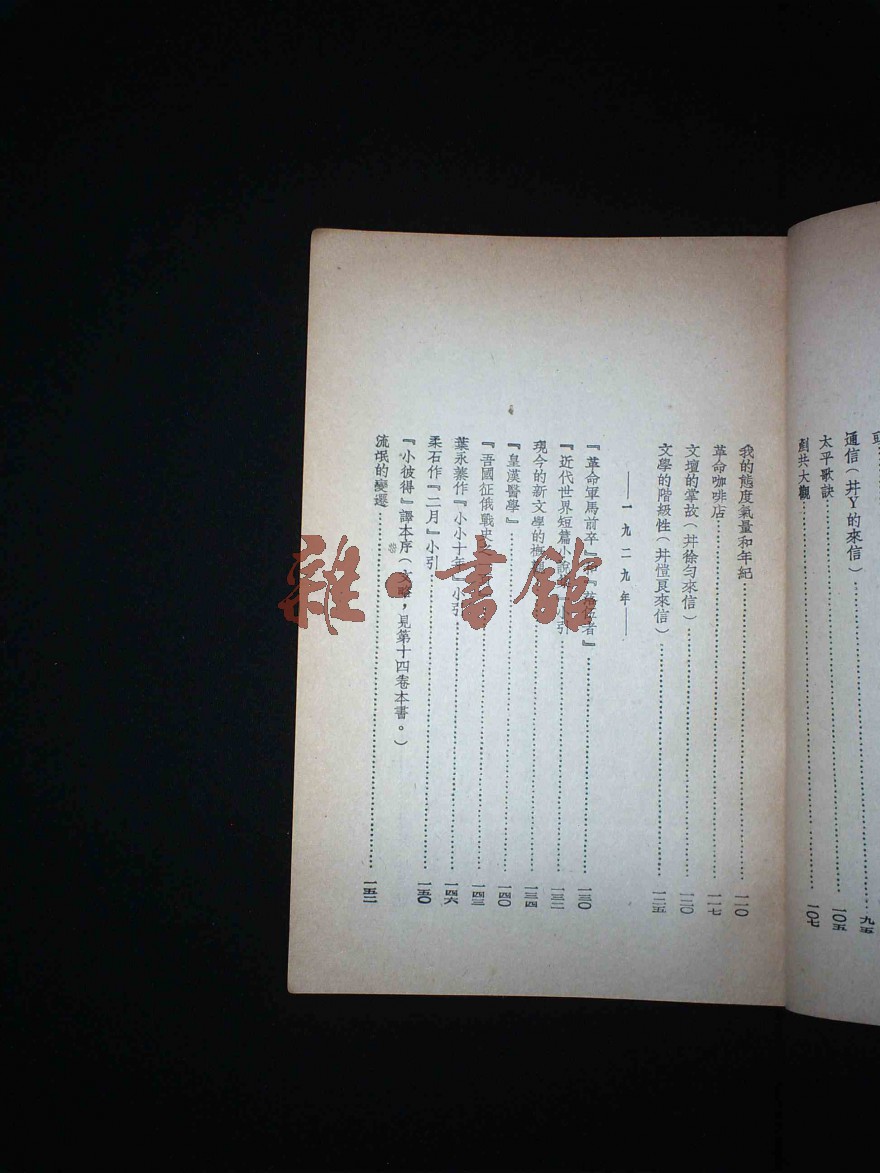 通信（并Y的來信）……九五
太平歌訣……一〇五
剷共大觀……一〇七
我的態度氣量和年紀……一一〇
革命咖啡店……一一七
文壇的掌故（并徐勻來信）……一二〇
文學的階級性（并愷良來信）……一二五
——一九二九年——
『革命軍馬前卒』和『落伍者』……一三〇
『近代世界短篇小說集』小引……一三二
現今的新文學的概觀……一三四
『皇漢醫學』……一四〇
『吾國征俄戰史之……一四三
葉永蓁作『小小十年』小引……一四六
柔石作『二月』小引……一五〇
『小彼得』譯本序（文略，見第十四卷本書。）
流氓的變遷……一五二
雜·書館